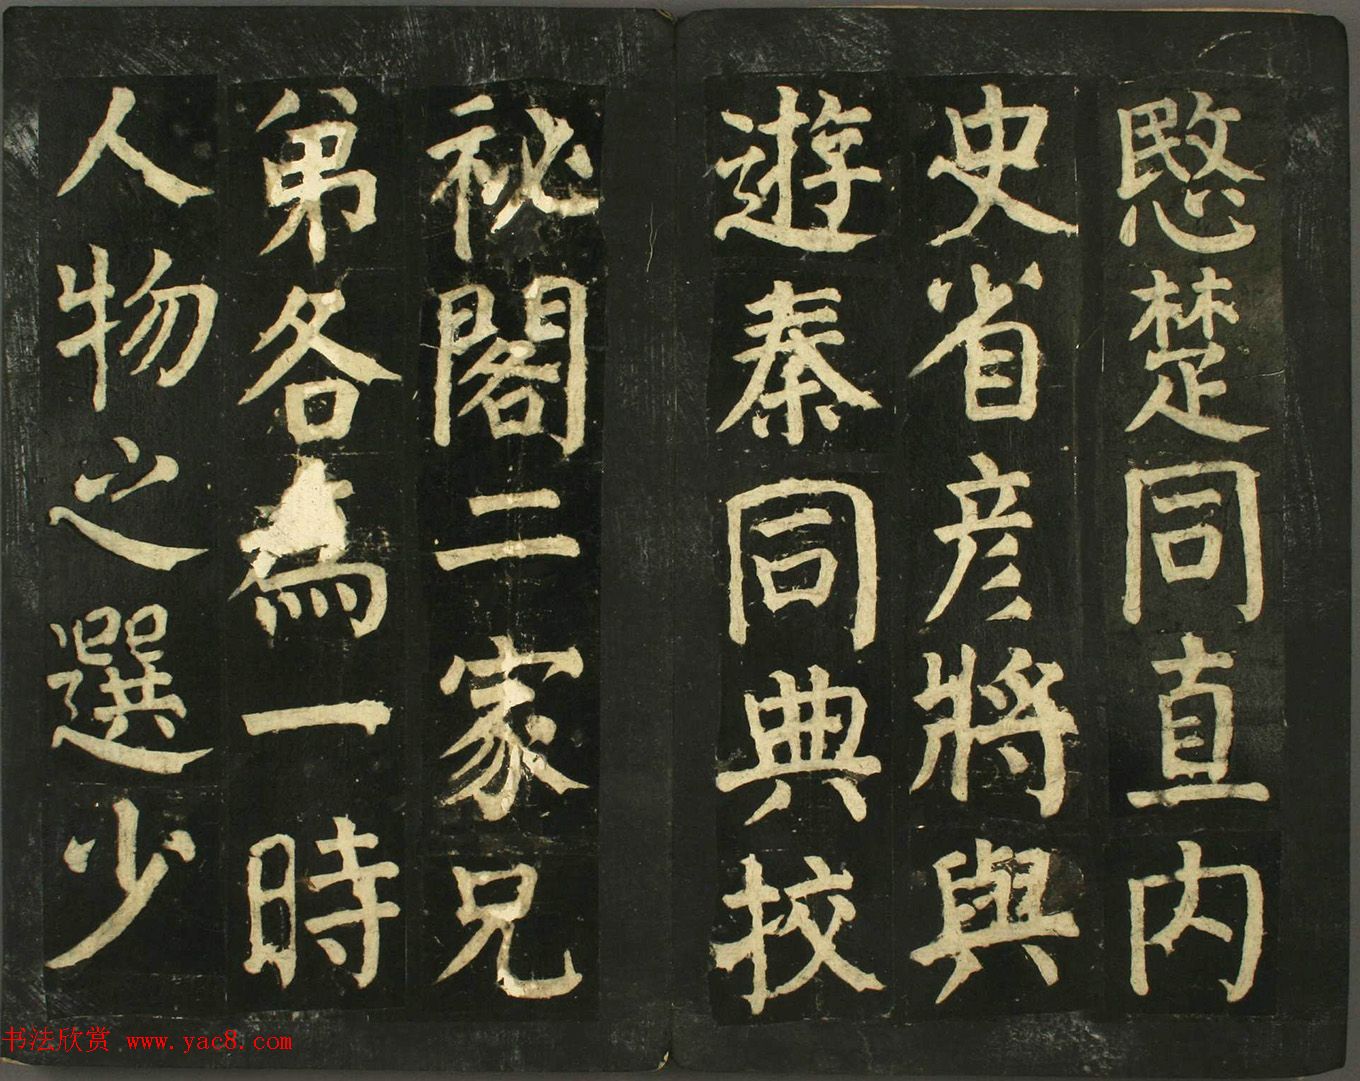 愍楚同直内
史省彦將與
遊秦同典校
祕閣二家兄
弟各為一時
人物之選少
书法欣赏 www.yac8.com